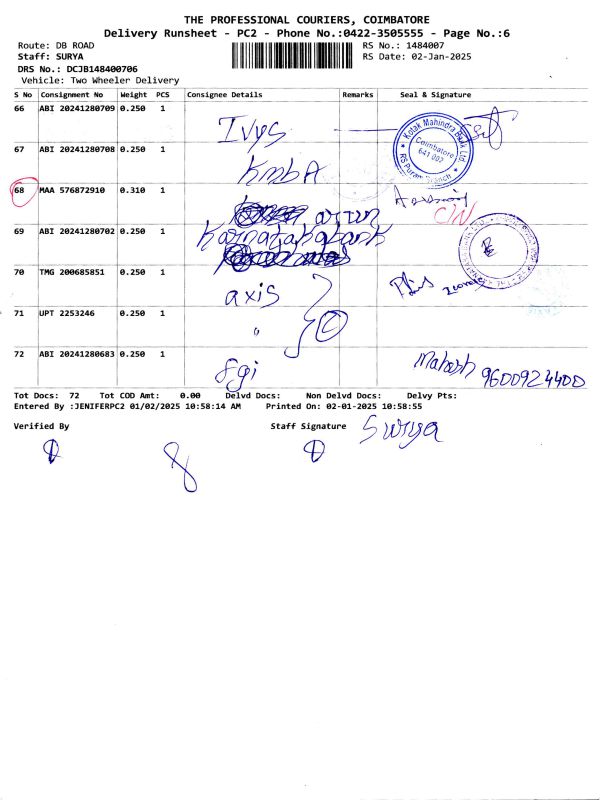 THE PROFESSIONAL COURIERS, COIMBATORE
Delivery Runsheet - PC2 - Phone No.:0422-3505555 - Page No.:6
Route: DB ROAD RS No.: 1484007
Staff: SURYA RS Date: 02-Jan-2025
DRS No.: DCJB148400706
Vehicle: Two Wheeler Delivery
S No Consignment No Weight PCS Consignee Details Remarks Seal & Signature
66 ABI 20241280709 0.250 1
Kotak Mahindra Bank Ltd
Coimbatore
641 002
RS Puram Branch
67 ABI 20241280708 0.250 1
KmbA
68 MAA 576872910 0.310 1
69 ABI 20241280702 0.250 1
70 TMG 200685851 0.250 1
axis
71 UPT 2253246 0.250 1
"
72 ABI 20241280683 0.250 1
sgi
Mahesh 9600924400
Tot Docs: 72 Tot COD Amt: 0.00 Delvd Docs: Non Delvd Docs: Delvy Pts:
Entered By :JENIFERPC2 01/02/2025 10:58:14 AM Printed On: 02-01-2025 10:58:55
Verified By Staff Signature Surya